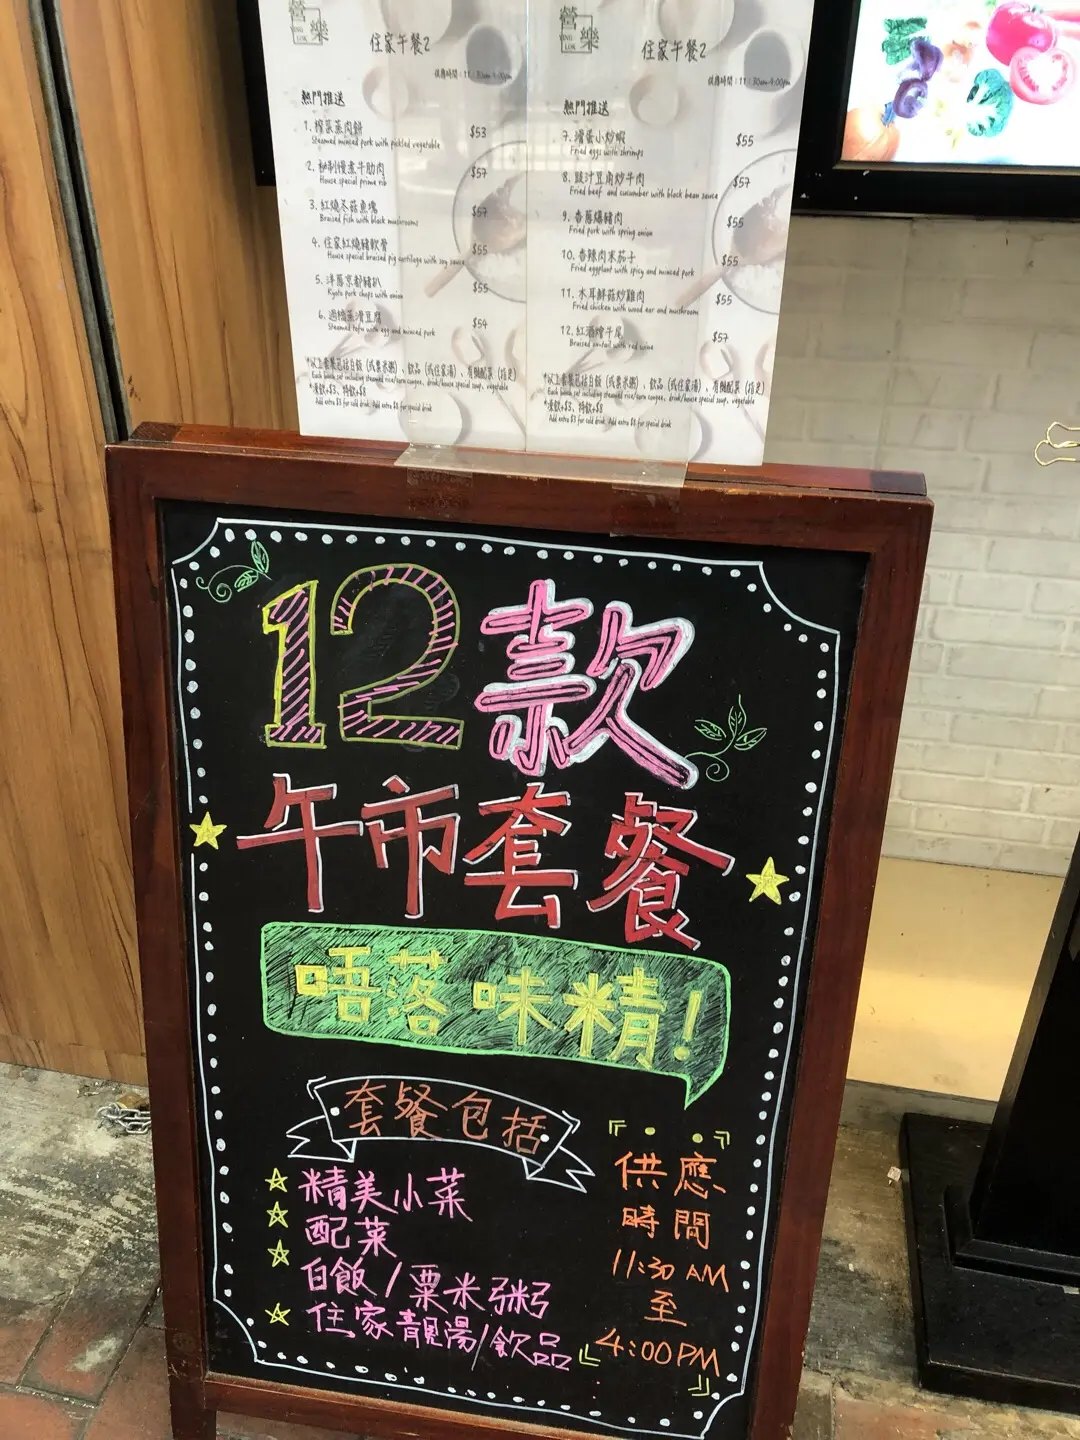 營
樂
YING
LOK
住家午餐2
熱門推送
1. 榨菜蒸肉餅 $53
Steamed minced pork with pickled vegetable
2. 秘制慢煮牛肋肉 $57
House special prime rib
3. 紅燒冬菇魚塊 $57
Braised fish with black mushrooms
4. 住家紅燒豬軟骨 $55
House special braised pig cartilage with soy sauce
5. 洋蔥京都豬扒 $55
Kyoto pork chops with onion
6. 過橋蒸滑豆腐 $54
Steamed tofu with egg and minced pork
*以上套餐包括白飯 (或粟米粥) 、飲品 (或住家湯) 、有機配菜 (指定)
Each lunch set including steamed rice/corn congee, drink/house special soup, vegetable
*凍飲+$3、特飲+$8
Add extra $3 for cold drink. Add extra $8 for special drink
營
樂
YING
LOK
住家午餐2
熱門推送
7. 滑蛋小炒蝦 $55
Fried eggs with shrimps
8. 豉汁豆角炒牛肉 $57
Fried beef and cucumber with black bean sauce
9. 香蔥爆豬肉 $55
Fried pork with spring onion
10. 香辣肉末茄子 $55
Fried eggplant with spicy and minced pork
11. 木耳鮮菇炒雞肉 $55
Fried chicken with wood ear and mushroom
12. 紅酒燴牛尾 $57
Braised ox-tail with red wine
*以上套餐包括白飯 (或粟米粥) 、飲品 (或住家湯) 、有機配菜 (指定)
Each lunch set including steamed rice/corn congee, drink/house special soup, vegetable
*凍飲+$3、特飲+$8
Add extra $3 for cold drink. Add extra $8 for special drink
12款
午市套餐
唔落味精!
套餐包括
精美小菜
配菜
白飯/粟米粥
住家靚湯/飲品
供應
時間
11:30 AM
至
4:00PM